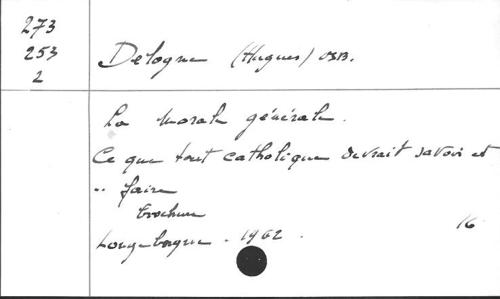 273
253
2
Delogne (Hugues) OSB.
La Morale générale.
Ce que tout catholique devrait savoir et
.. faire
brochure
16
. 1962.